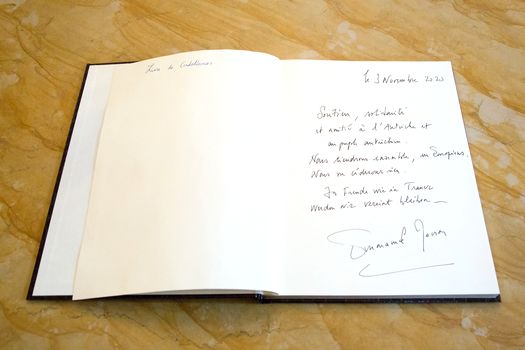 Livre de Condoléances
Le 3 Novembre 2020
Soutien, solidarité
et amitié à l'Autriche et
au peuple autrichien.
Nous tiendrons ensemble, en Européens.
Nous ne céderons rien.
In Freude wie in Trauer
werden wir vereint bleiben —
Emmanuel Macron